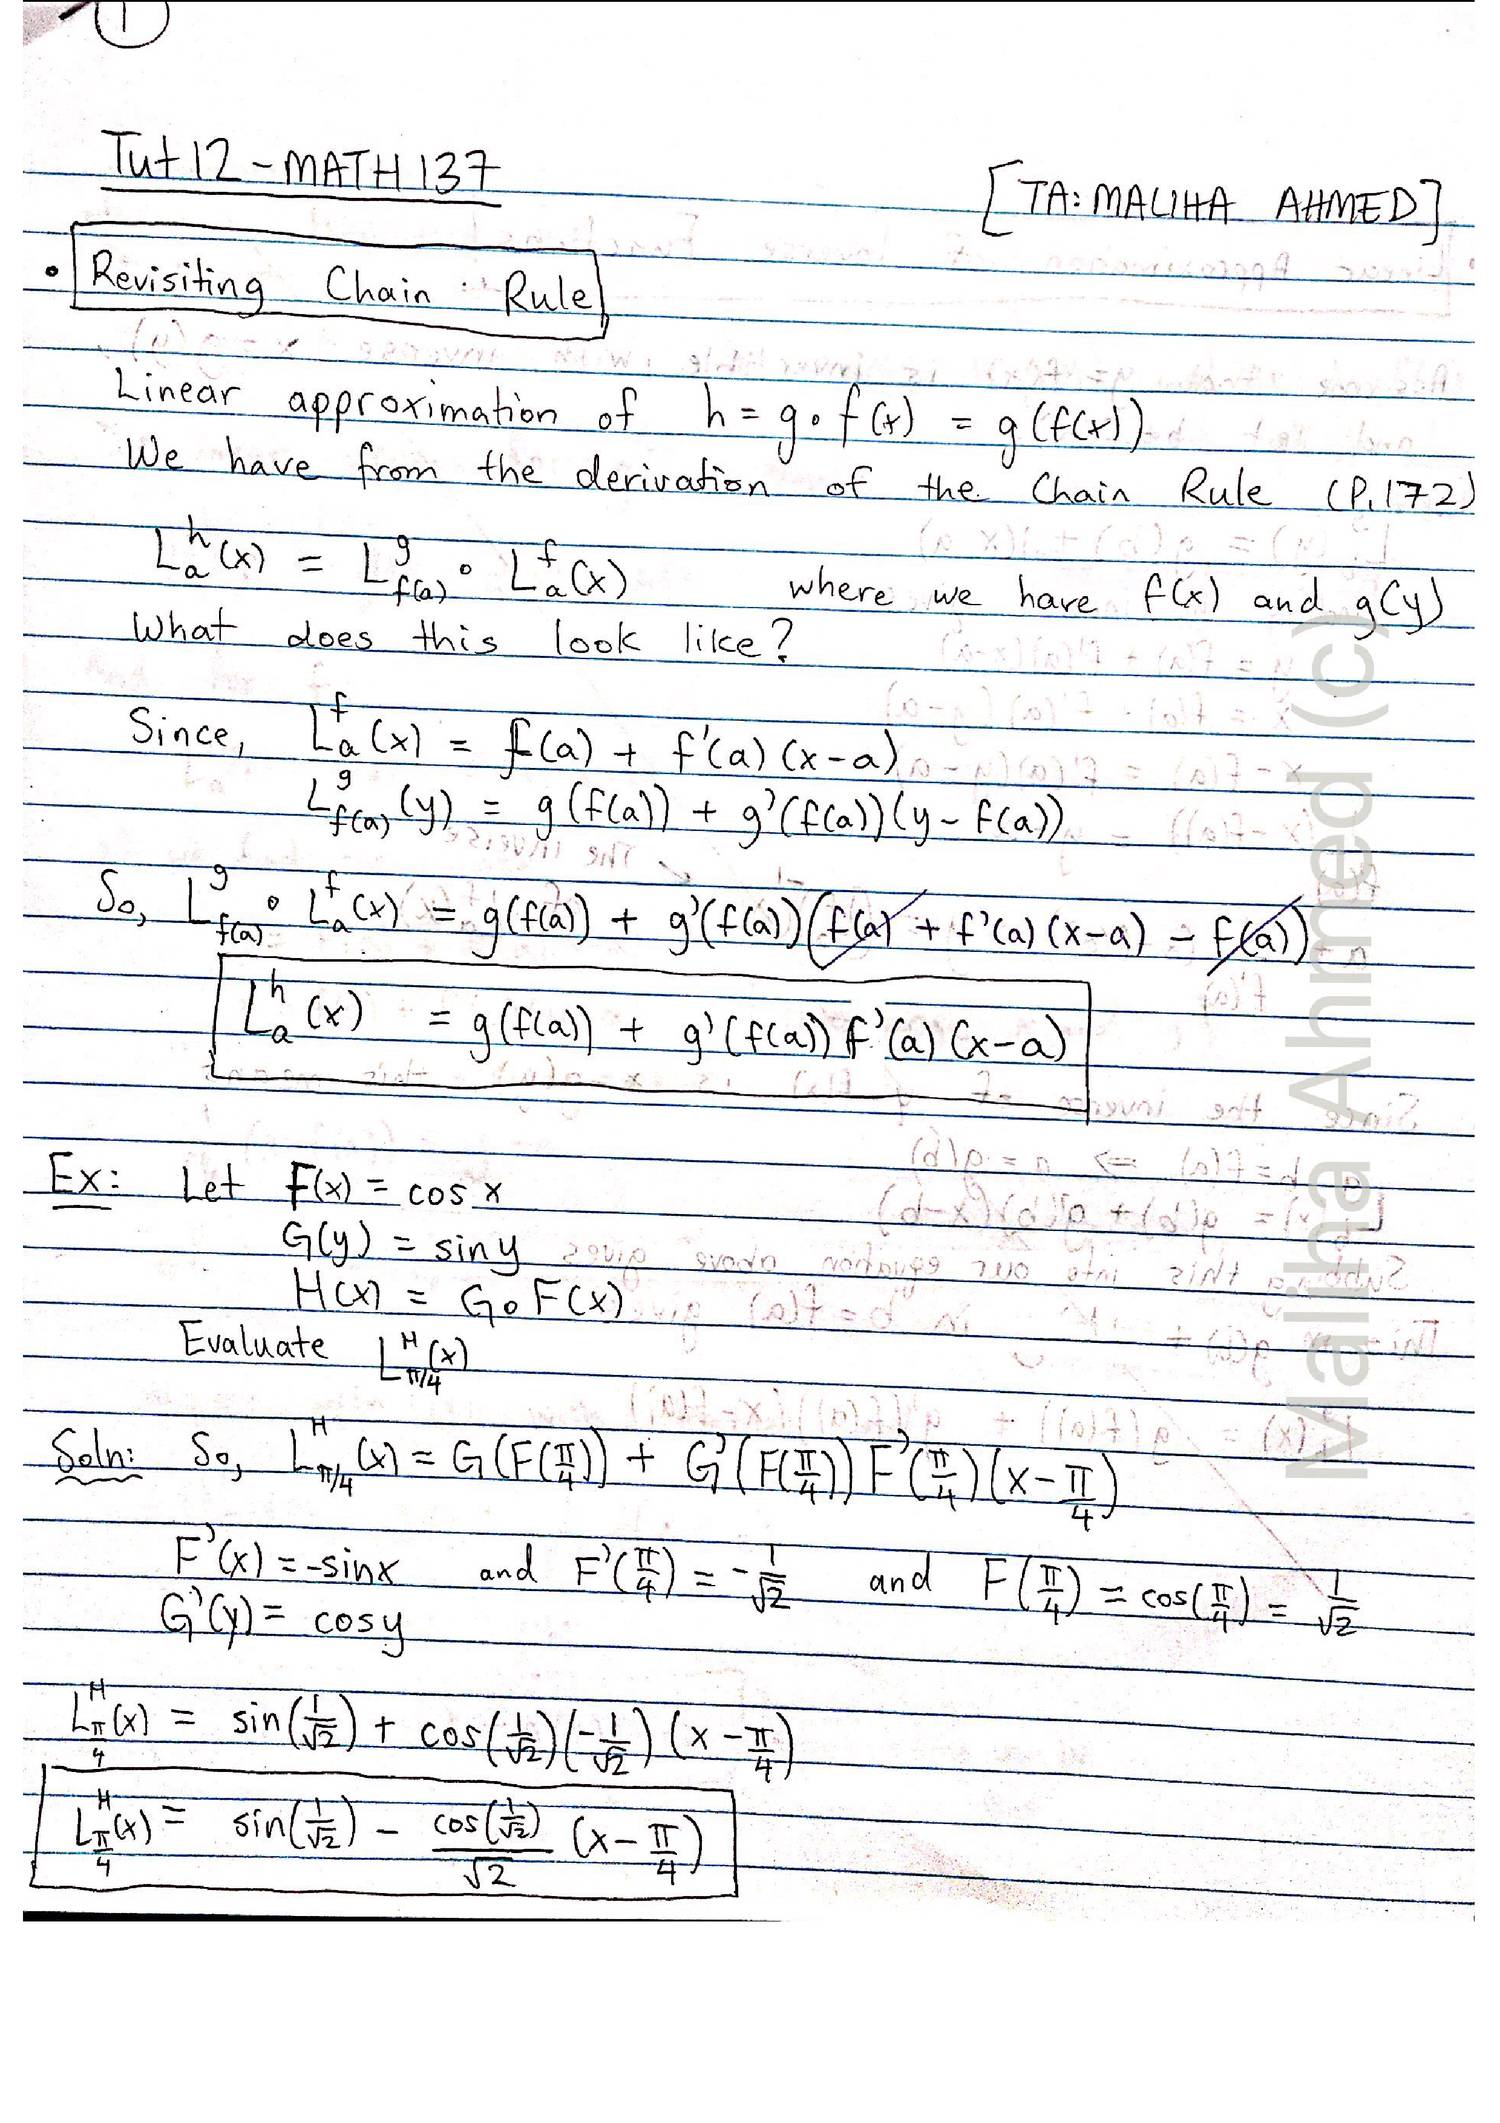 1
Tut 12 - MATH 137
[TA: MALIHA AHMED]
• Revisiting Chain Rule
Linear approximation of h = g∘f(x) = g(f(x))
We have from the derivation of the Chain Rule (P.172)
L_a^h(x) = L_{f(a)}^g ∘ L_a^f(x) where we have f(x) and g(y)
What does this look like?
Since, L_a^f(x) = f(a) + f'(a)(x-a)
L_{f(a)}^g(y) = g(f(a)) + g'(f(a))(y-f(a))
So, L_{f(a)}^g ∘ L_a^f(x) = g(f(a)) + g'(f(a))(f(a) + f'(a)(x-a) - f(a))
L_a^h(x) = g(f(a)) + g'(f(a))f'(a)(x-a)
Ex: Let F(x) = cos x
G(y) = sin y
H(x) = G∘F(x)
Evaluate L_{π/4}^H(x)
Soln: So, L_{π/4}^H(x) = G(F(π/4)) + G'(F(π/4))F'(π/4)(x-π/4)
F'(x) = -sinx and F'(π/4) = -1/√2 and F(π/4) = cos(π/4) = 1/√2
G'(y) = cosy
L_{π/4}^H(x) = sin(1/√2) + cos(1/√2)(-1/√2)(x-π/4)
L_{π/4}^H(x) = sin(1/√2) - cos(1/√2)/√2 (x-π/4)
Maliha Ahmed (c)